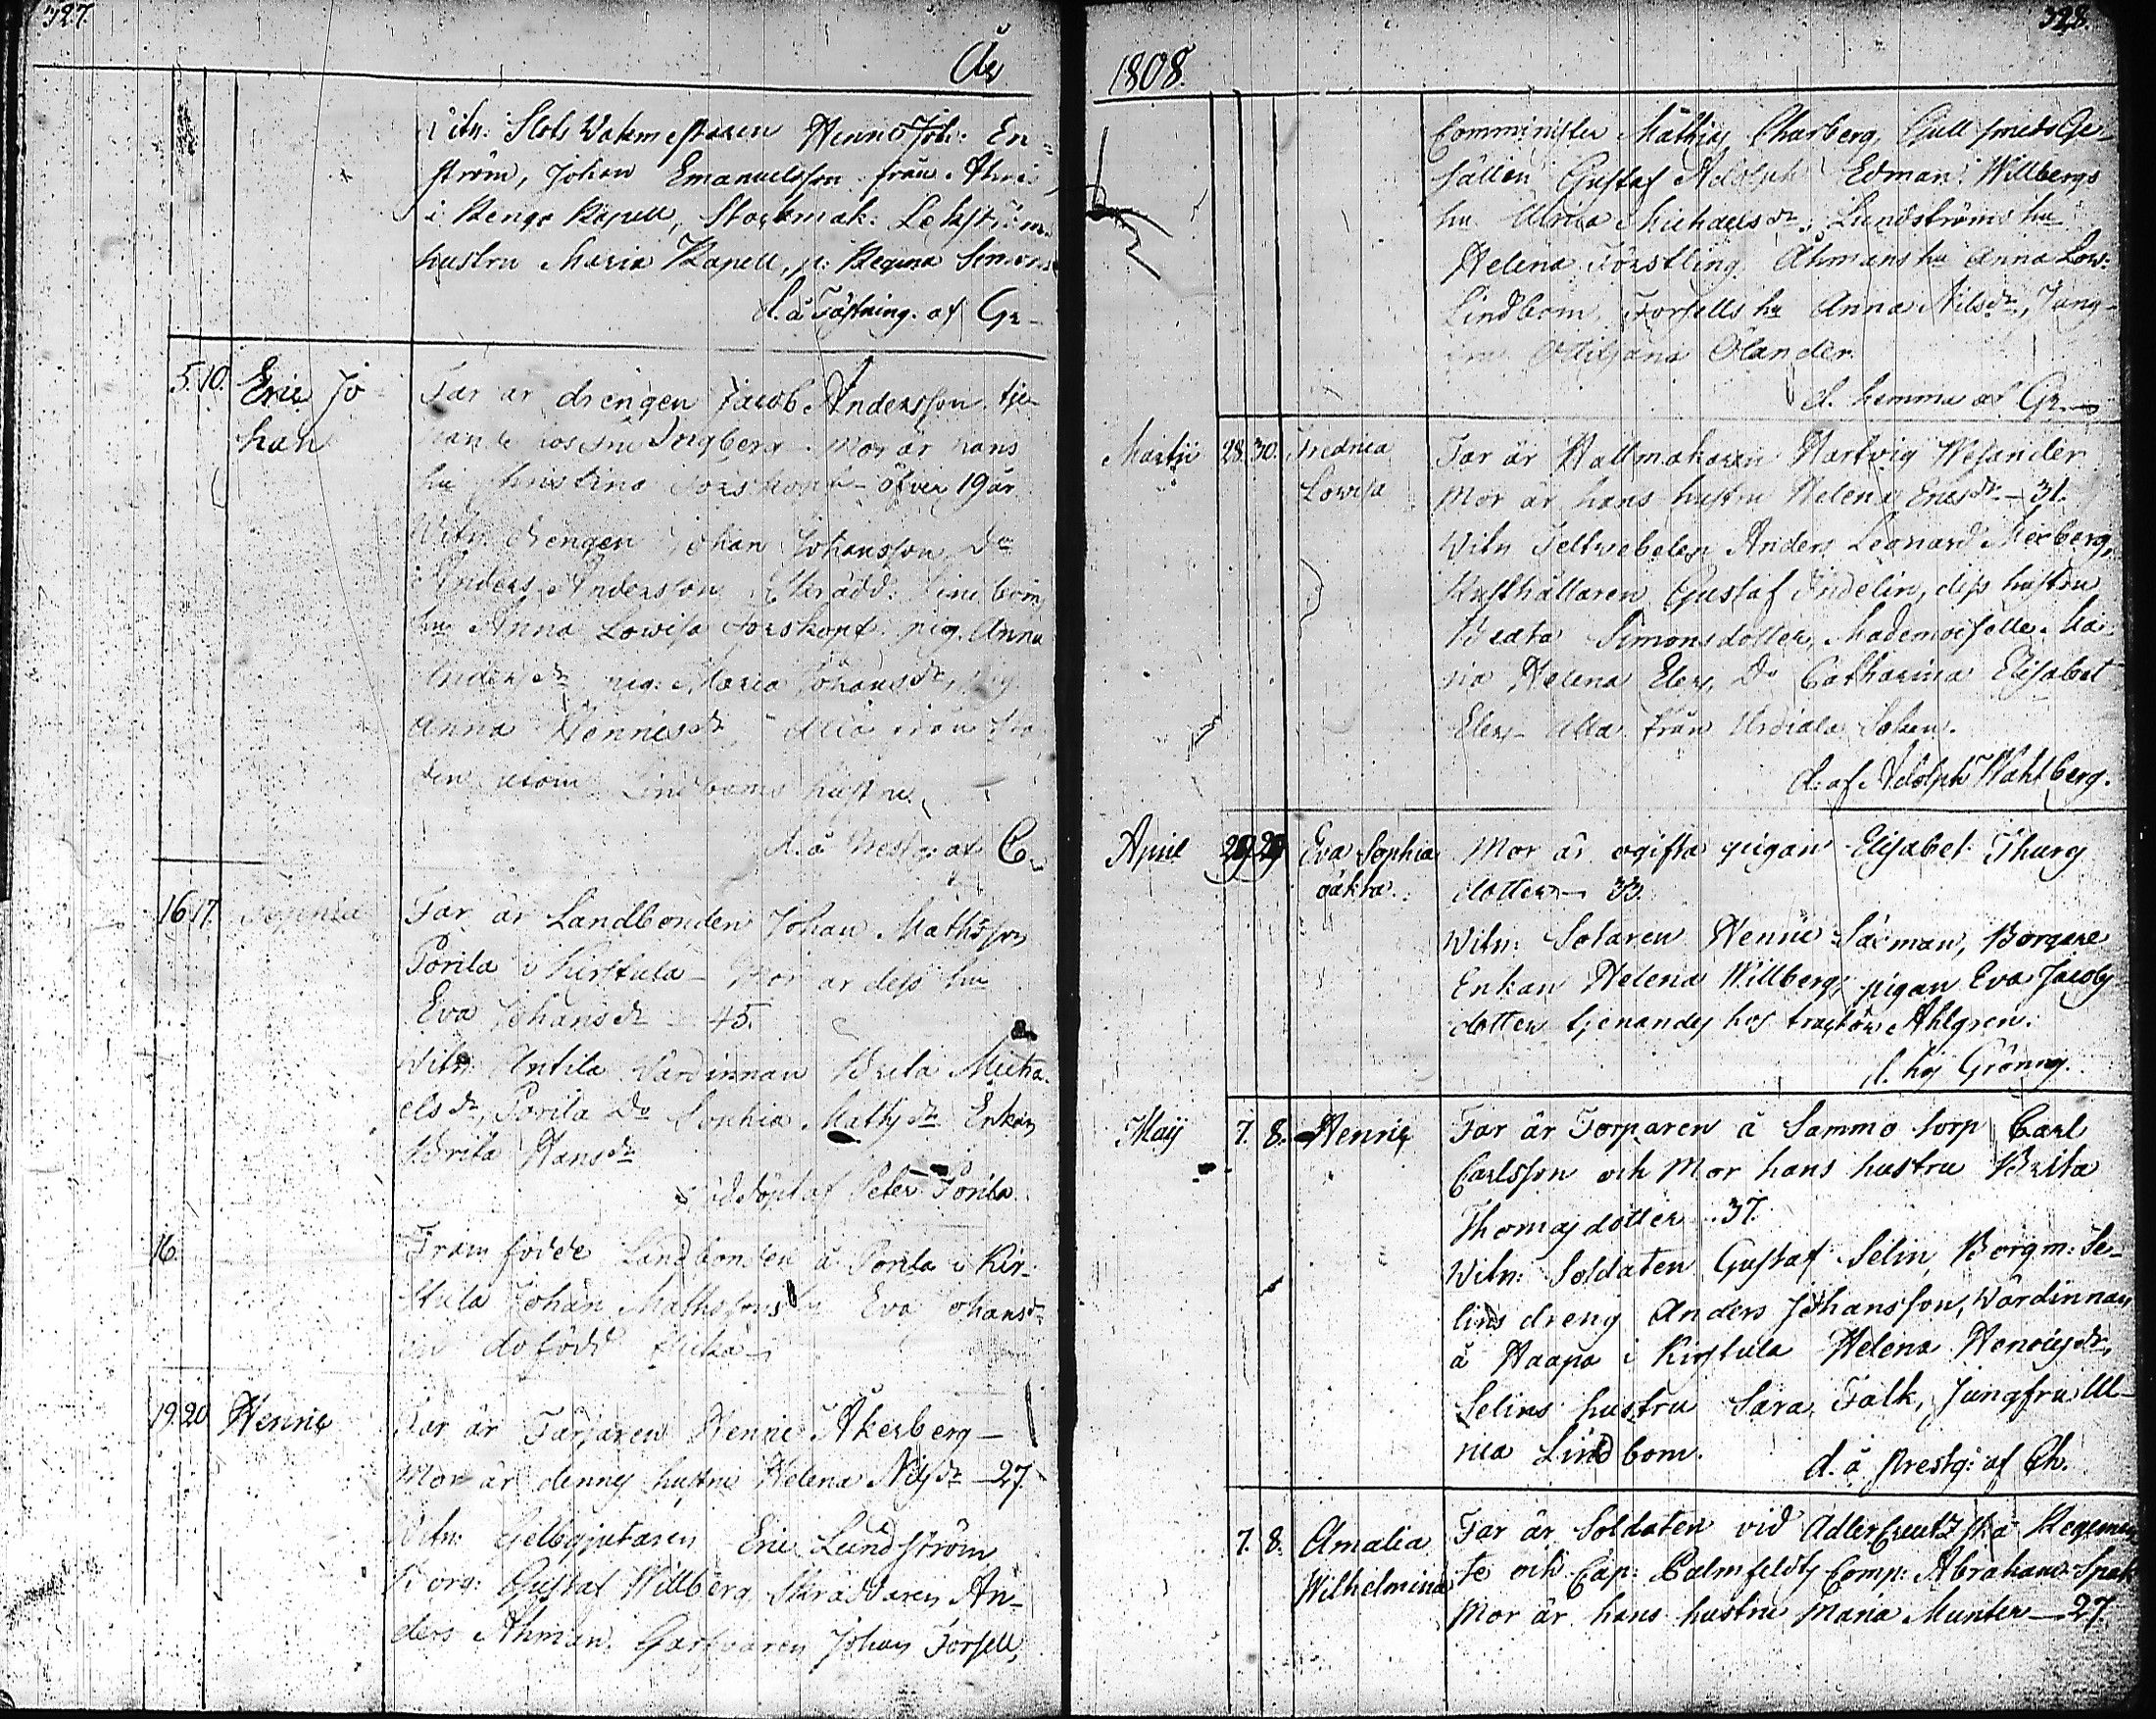 327.
År
Witn: Slots Wakmestaren Henric Joh: En=
ström, Johan Emanuelsson från
i Rengo Kapell, Stolmak:
hustru Maria Kapell, p: Regina Simons
d. å Fästning. af Gr-
5. 10. Eric Jo
han
Far är drengen Jacob Andersson tje-
nande hos Ingberg. Mor är hans
hu Christina Forskopf - öfver 19 år
Witn: drengen Johan Johansson, Do
Anders Andersson, Skrädd: Lindboms
hu Anna Lowisa Forskopf. pig. Anna
Andersdr, pig: Maria Johansdr, pig
Anna Henricsdr alla från Sta
den utom Lindboms hustru.
d. å Prestg: af C.
16 17. Sophia
Far är Landbonden Johan Mathsson
Porila i Kirstula - Mor är dess hu
Eva Johansdr - 45.
Witn: Antila Wärdinnan Brita Micha-
elsdr, Porila Do Sophia Mathsdr Enkan
Brita Hansdr
Nöddöpt af Peter Porila
16.
Framfödde Landbonden å Porila i Kir-
stula Johan Mathssons hu Eva Johansdr
en dödfödd flicka -
19. 20 Henric
Far är Färjaren Henric Åkerberg -
Mor är dennes hustru Helena Nilsdr - 27.
Witn: Gelbgjutaren Eric Lundström
Borg: Gustaf Willberg Skräddaren An-
ders Åhman. Garfvaren Johan Forsell,
328.
1808.
Comminister Mathias Charberg, Gullsmeds Ge-
sällen Gustaf Adolph Edman. Willbergs
hu Ulrica Michaelsdr, Lundströms hu
Helena Förstling Åhmans hu Anna Low.
Lindbom, Forsells hu Anna Nilsdr, Jung-
fru Ottiljana Ölander.
d. hemma af Gr.
Martji 28. 30. Fredrica
Lowisa
Far är Hattmakaren Hartvig Wesander
Mor är hans hustru Helena Ericsdr - 31.
Witn Feltwebelen Anders Leonard Mexberg,
Rusthållaren Gustaf Indelin, dess hustru
Beata Simonsdotter, Mademoiselle Ma-
ria Helena Elers, Do Catharina Elisabet
Elers - Alla från Urdiala Soken.
d: af Adolph Wahlberg.
April 29 29 Eva Sophia
oäkta.
Mor är ogifta pigan Elisabet Thures
dotter - 33.
Witn: Sotaren Henric Säman, Borgare
Enkan Helena Willberg, pigan Eva Jacobs
dotter tjenandes hos tracktör Ahlgren.
d. hos Grönrg.
Maij 7. 8. Henric
Far är Torparen å Sammo torp Carl
Carlsson och Mor hans hustru Brita
Thomasdotter - 37.
Witn: Soldaten Gustaf Selin, Borgm: Se-
lins dreng Anders Johansson, Wärdinnan
å Haapa i Kirstula Helena Henricsdr,
Selins hustru Sara Falk, Jungfru Ul-
rica Lindbom.
d. å prestg: af Ch.
7. 8. Amalia
Wilhelmina
Far är Soldaten vid AdlerCreutzska Regemen
te och Cap: Palmfeldts Comp: Abraham Spak
Mor är hans hustru Maria Munter - 27.